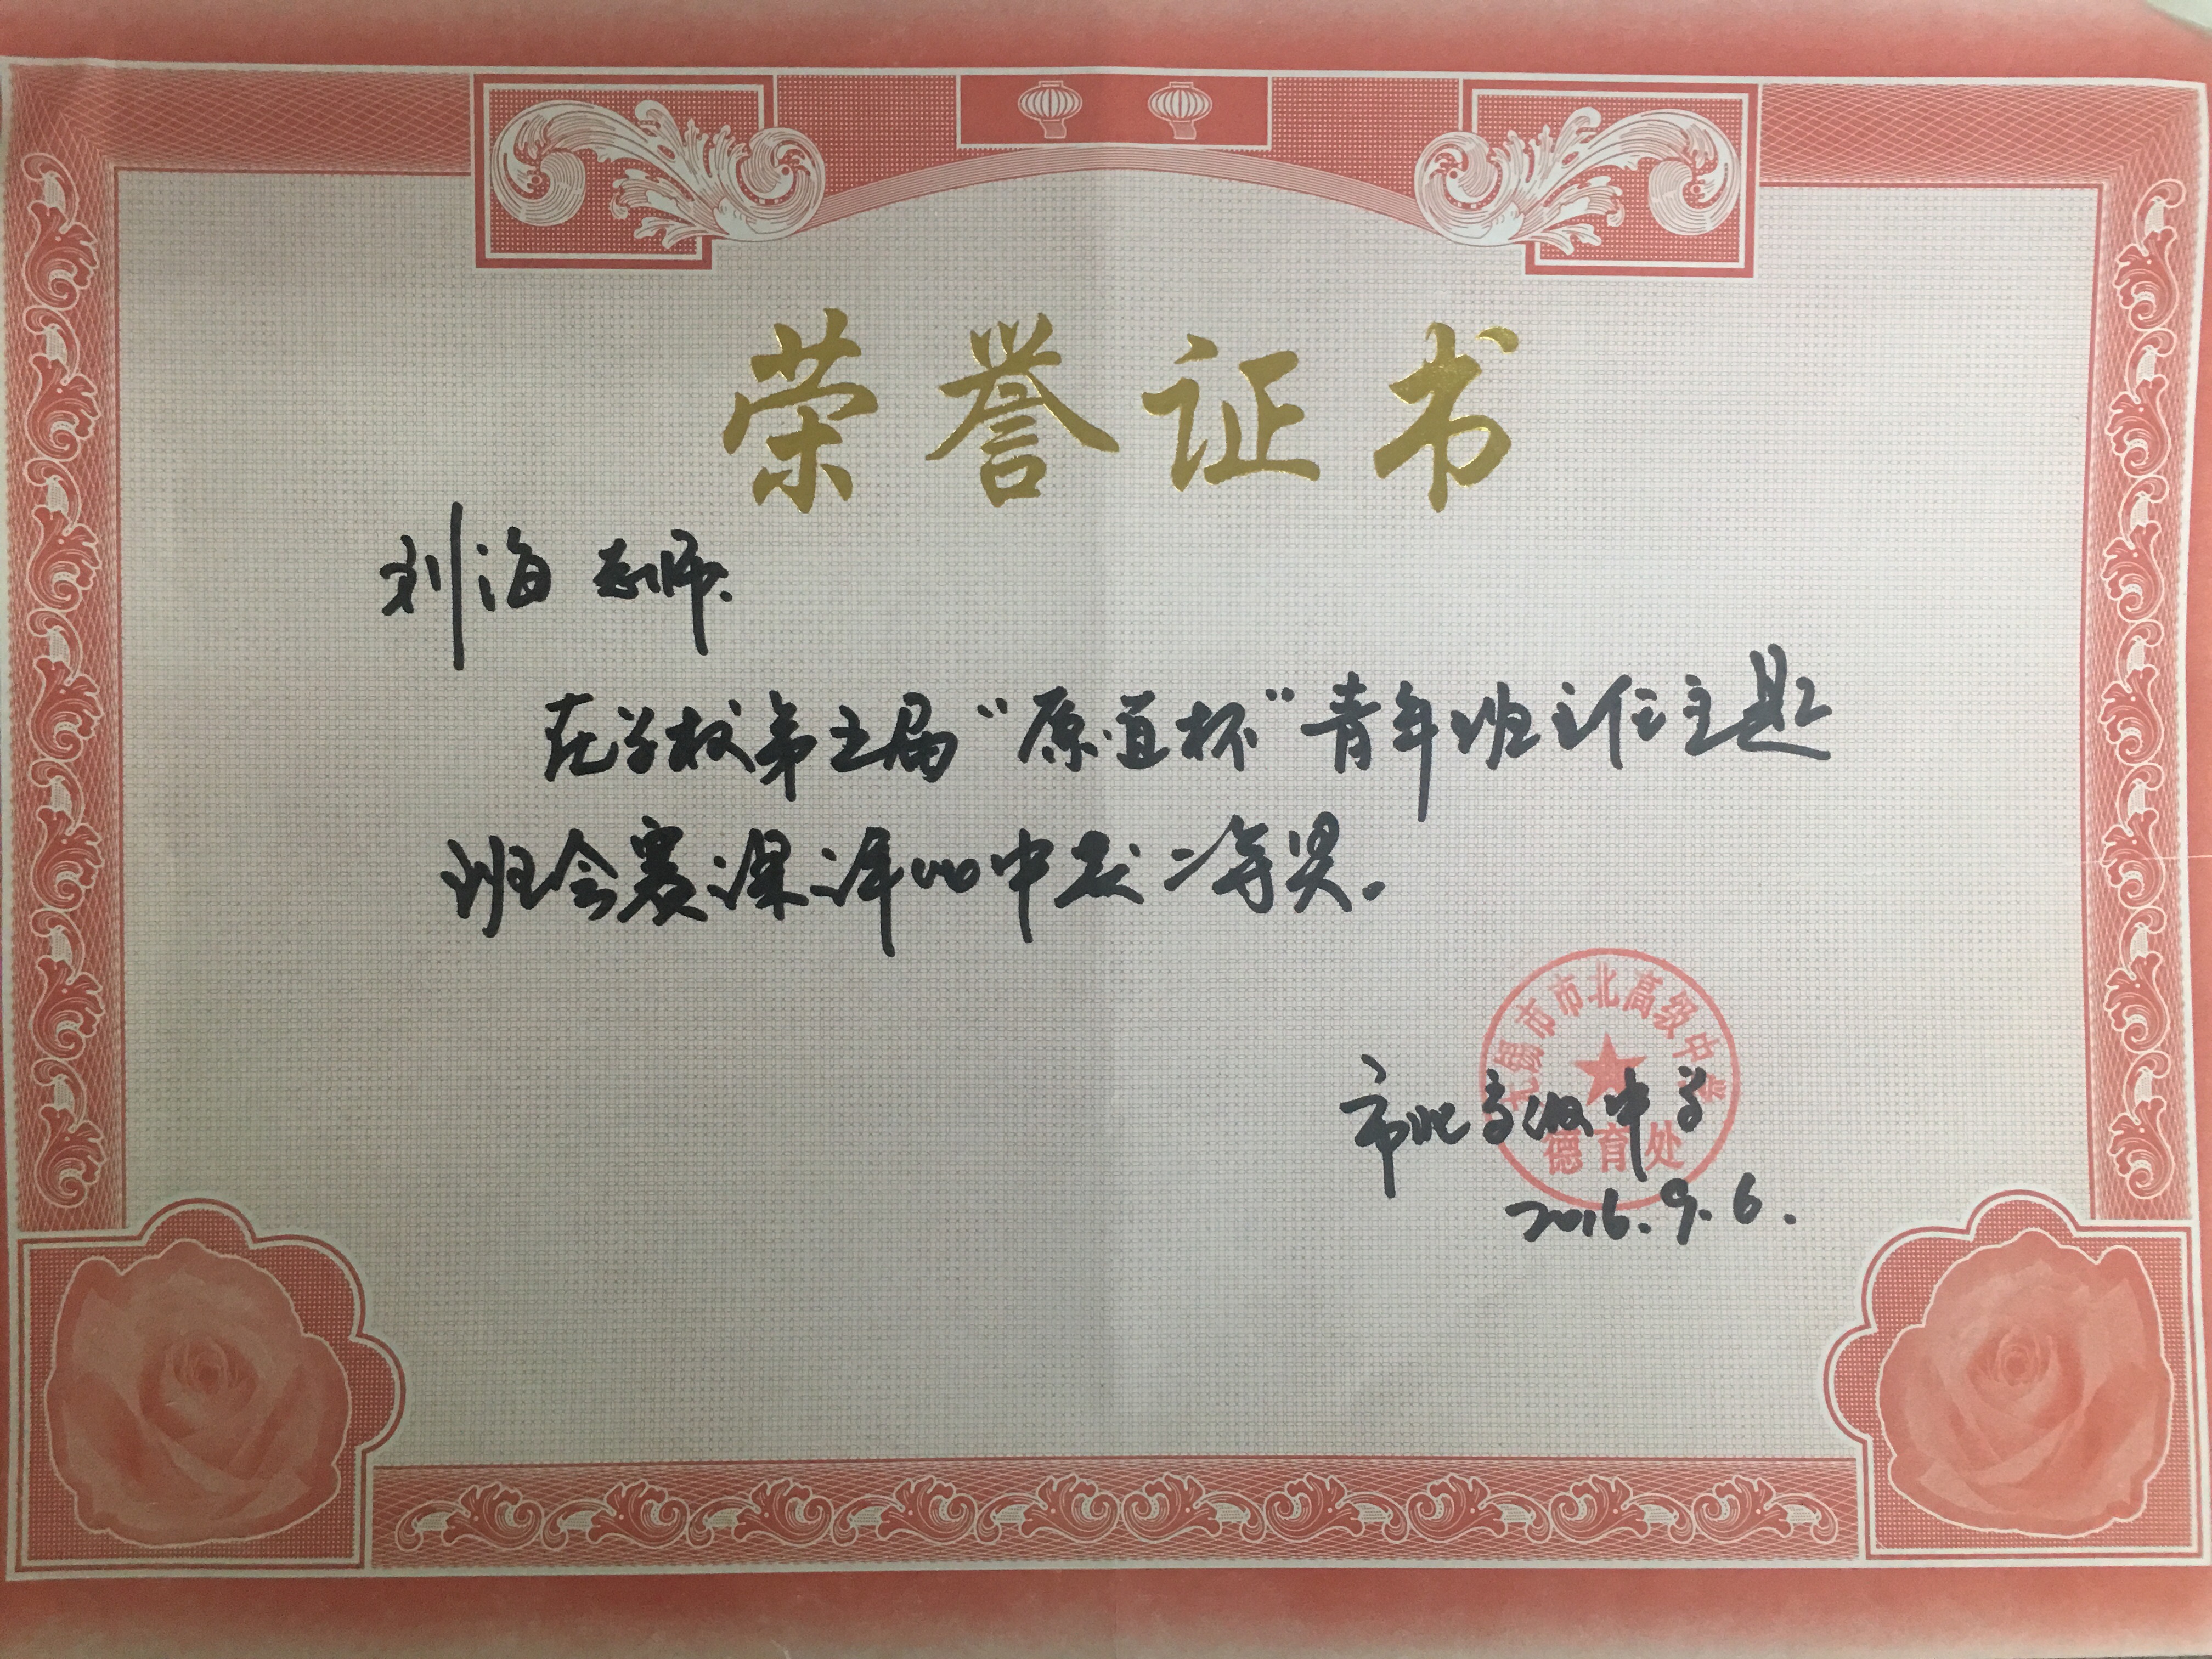 荣誉证书
刘海老师:
在学校第五届“原道杯”青年班主任主题
班会赛课评比中获二等奖。
市北高级中学
德育处
市北高级中学
2016.9.6.